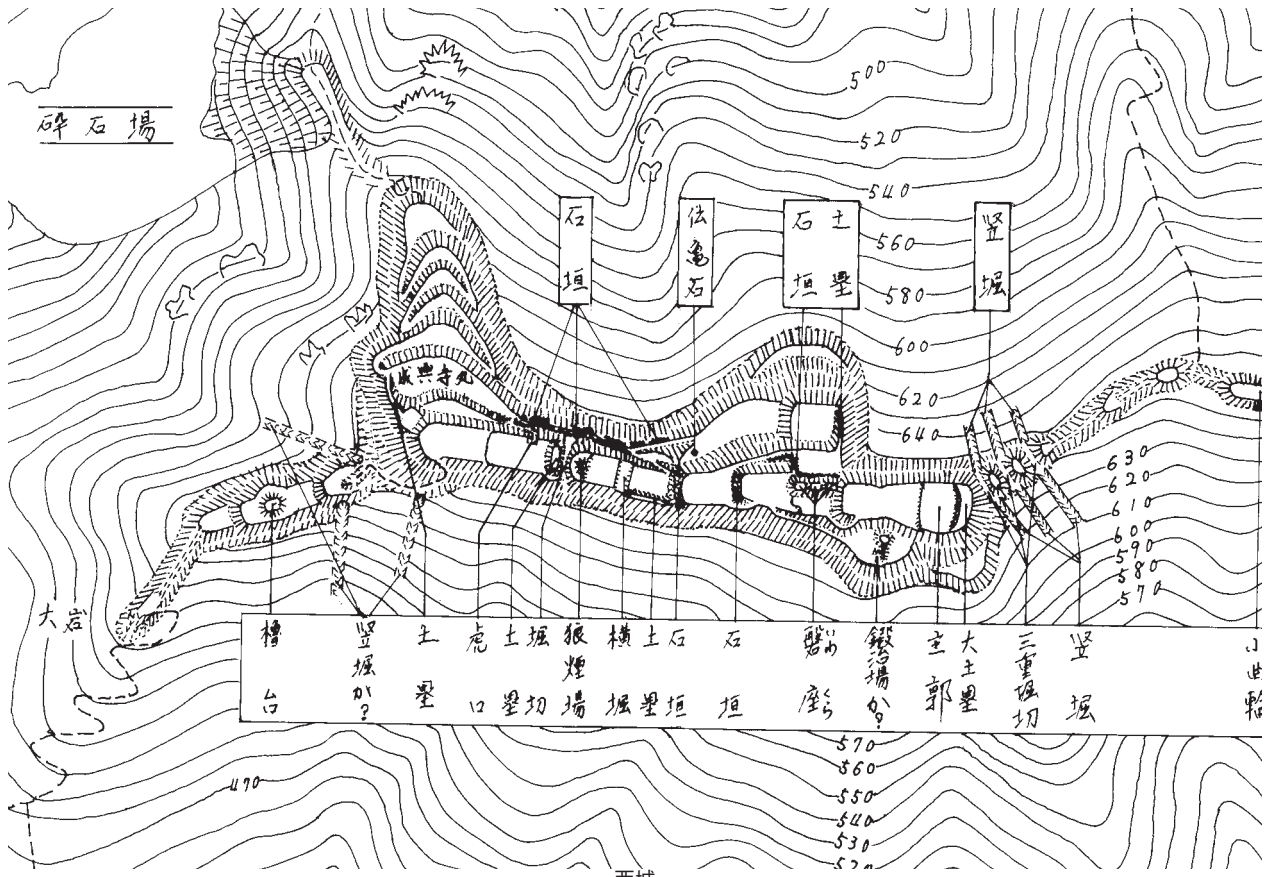 砕石場
500
520
540
560
580
600
620
640
石垣
伝亀石
石垣
土塁
竪堀
成興寺丸
630
620
610
600
590
580
570
大岩
櫓台
竪堀か?
土塁
虎口
土塁
堀切
狼煙場
横堀
土塁
石垣
石垣
磐座
いわくら
鍛冶場か?
主郭
大土塁
三重堀切
竪堀
小曲輪
470
570
560
550
540
530
520
西城